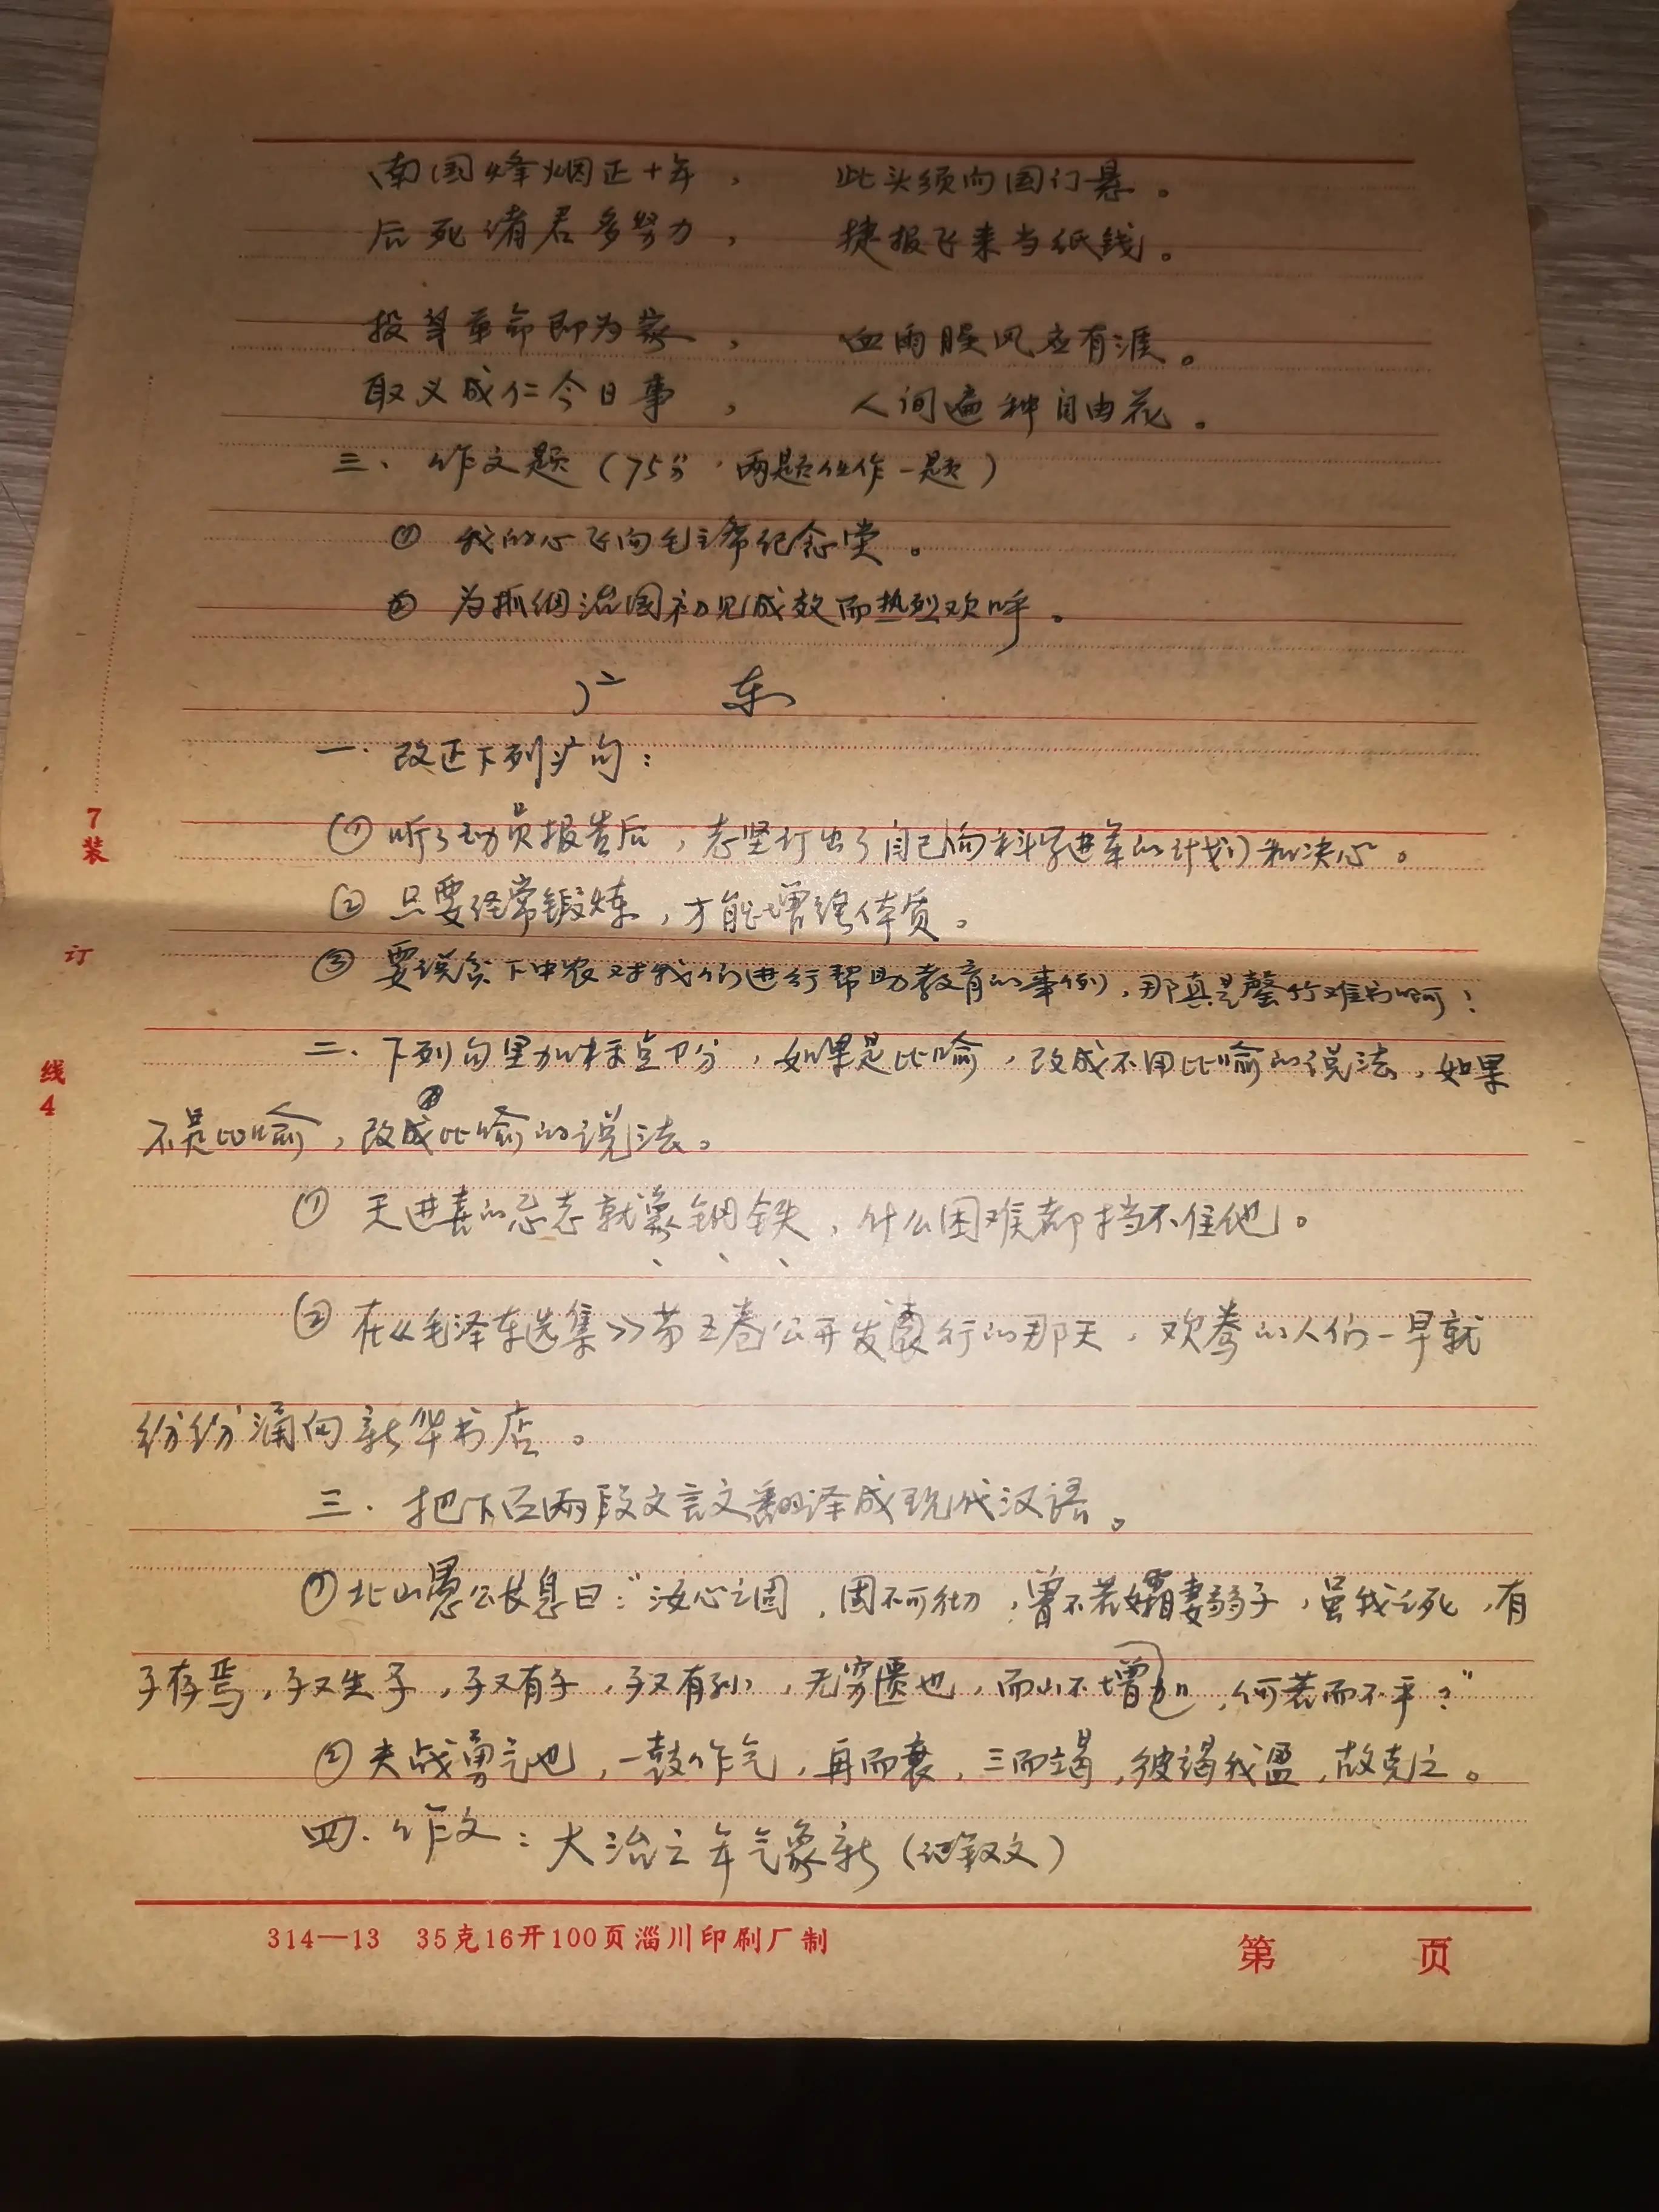 南国烽烟正十年， 此头须向国门悬。
后死诸君多努力， 捷报飞来当纸钱。
投身革命即为家， 血雨腥风应有涯。
取义成仁今日事， 人间遍种自由花。
三、作文题（75分，两题任作一题）
① 我的心飞向毛主席纪念堂。
② 为抓纲治国初见成效而热烈欢呼。
广 东
一. 改正下列病句：
① 听了动员报告后，志坚订出了自己向科学进军的计划和决心。
② 只要经常锻炼，才能增强体质。
③ 要说贫下中农对我们进行帮助教育的事例，那真是罄竹难书啊！
二. 下列句里加标点部分，如果是比喻，改成不用比喻的说法，如果
不是比喻，改成比喻的说法。
① 王进喜的意志就象钢铁，什么困难都挡不住他。
② 在《毛泽东选集》第五卷公开发行的那天，欢腾的人们一早就
纷纷涌向新华书店。
三. 把下面两段文言文翻译成现代汉语。
① 北山愚公长息曰：“汝心之固，固不可彻，曾不若孀妻弱子，虽我之死，有
子存焉，子又生子，子又有子，子又有孙，无穷匮也，而山不增加，何苦而不平？”
② 夫战勇气也，一鼓作气，再而衰，三而竭，彼竭我盈，故克之。
四. 作文：大治之年气象新（记叙文）
7
装
订
线
4
314—13 35克16开100页淄川印刷厂制 第 页